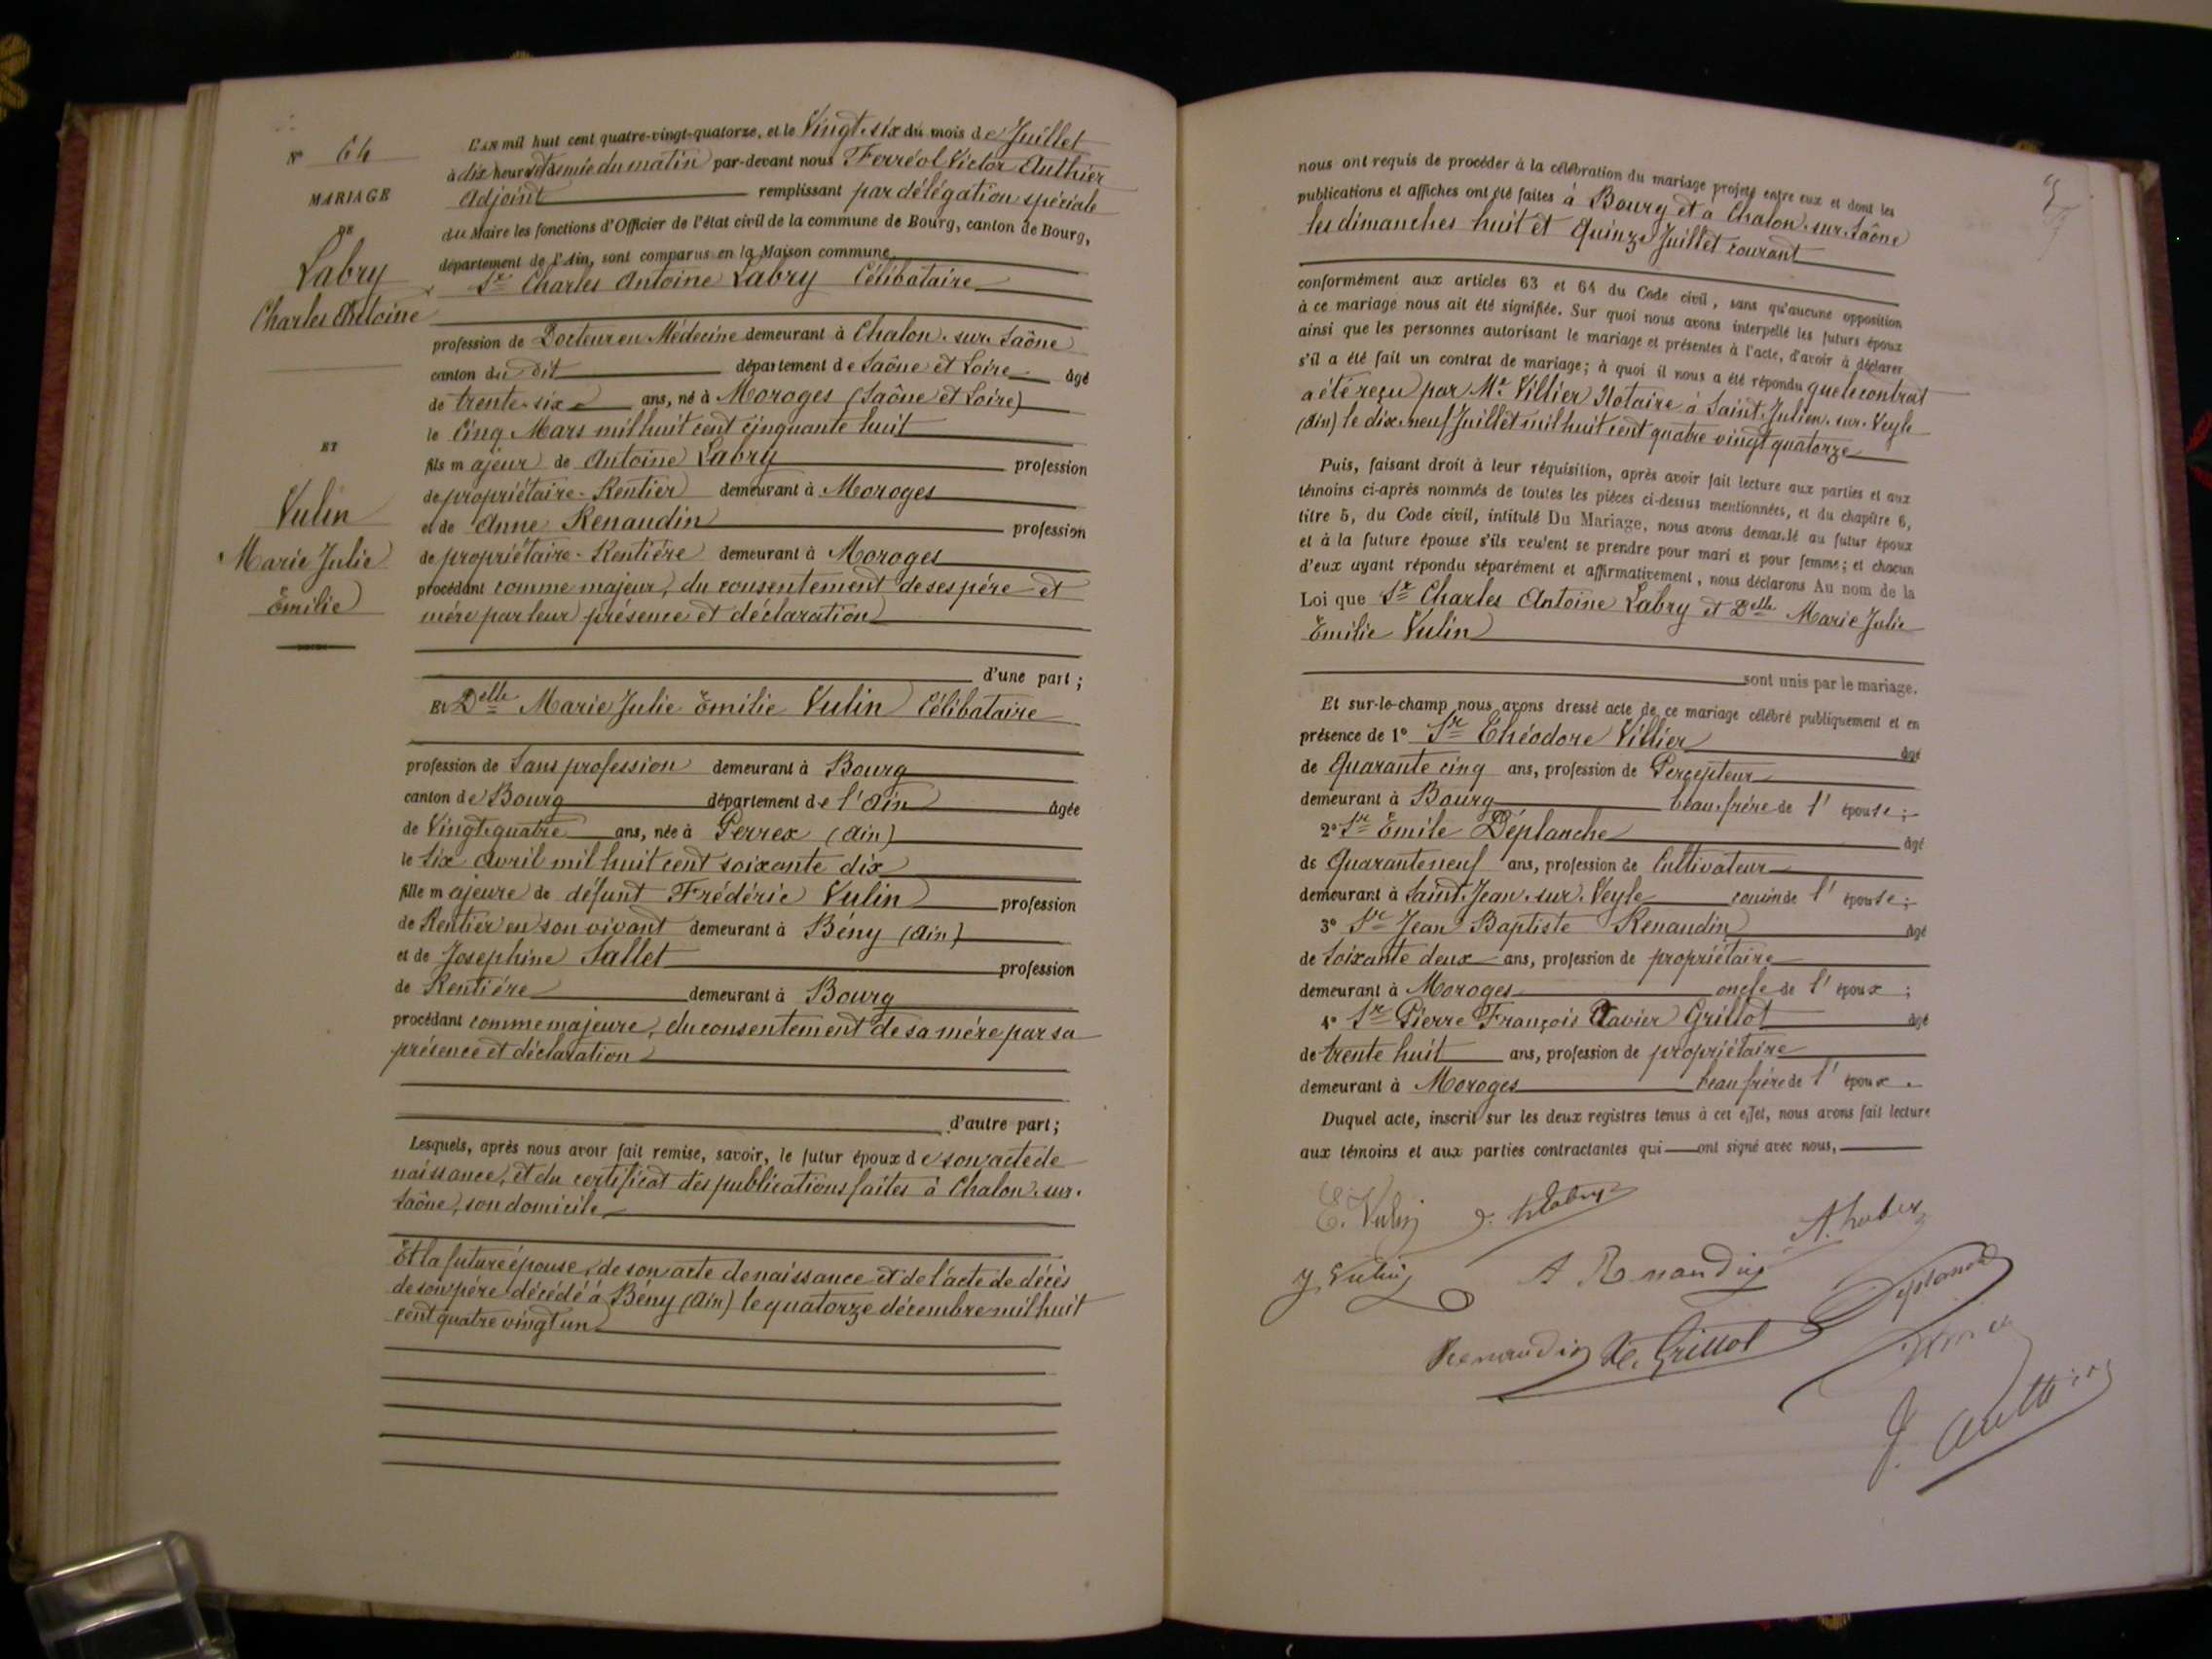 N° 64
MARIAGE
DE
Labry
Charles Antoine
ET
Vulin
Marie Julie
Emilie
L'AN mil huit cent quatre-vingt-quatorze, et le Vingt-six du mois de Juillet
à dix heures et demie du matin par-devant nous Ferréol Victor Authier
Adjoint remplissant par délégation spéciale
du Maire les fonctions d'Officier de l'état civil de la commune de Bourg, canton de Bourg,
département de l'Ain, sont comparus en la Maison commune
Sr Charles Antoine Labry Célibataire
profession de Docteur en Médecine demeurant à Chalon-sur-Saône
canton du dit département de Saône et Loire âgé
de trente-six ans, né à Moroges (Saône et Loire)
le Cinq Mars mil huit cent cinquante huit
fils majeur de Antoine Labry profession
de propriétaire-Rentier demeurant à Moroges
et de Anne Renaudin profession
de propriétaire-Rentière demeurant à Moroges
procédant comme majeur, du consentement de ses père et
mère par leur présence et déclaration
d'une part ;
Et Delle Marie Julie Emilie Vulin Célibataire
profession de Sans profession demeurant à Bourg
canton de Bourg département de l'Ain âgée
de Vingt-quatre ans, née à Perrex (Ain)
le Six Avril mil huit cent soixante dix
fille majeure de défunt Frédéric Vulin profession
de Rentier en son vivant demeurant à Bény (Ain)
et de Josephine Sallet profession
de Rentière demeurant à Bourg
procédant comme majeure, du consentement de sa mère par sa
présence et déclaration
d'autre part ;
Lesquels, après nous avoir fait remise, savoir, le futur époux de son acte de
naissance, et du certificat des publications faites à Chalon-sur-
Saône, son domicile
Et la future épouse, de son acte de naissance et de l'acte de décès
de son père décédé à Bény (Ain) le quatorze décembre mil huit
cent quatre vingt un
nous ont requis de procéder à la célébration du mariage projeté entre eux et dont les
publications et affiches ont été faites à Bourg et à Chalon-sur-Saône
les dimanches huit et Quinze Juillet courant
conformément aux articles 63 et 64 du Code civil, sans qu'aucune opposition
à ce mariage nous ait été signifiée. Sur quoi nous avons interpellé les futurs époux
ainsi que les personnes autorisant le mariage et présentes à l'acte, d'avoir à déclarer
s'il a été fait un contrat de mariage ; à quoi il nous a été répondu que le contrat
a été reçu par Me Villier Notaire à Saint-Julien-sur-Veyle
(Ain) le dix-neuf Juillet mil huit cent quatre vingt quatorze
Puis, faisant droit à leur réquisition, après avoir fait lecture aux parties et aux
témoins ci-après nommés de toutes les pièces ci-dessus mentionnées, et du chapitre 6,
titre 5, du Code civil, intitulé Du Mariage, nous avons demandé au futur époux
et à la future épouse s'ils veulent se prendre pour mari et pour femme ; et chacun
d'eux ayant répondu séparément et affirmativement, nous déclarons Au nom de la
Loi que Sr Charles Antoine Labry et Delle Marie Julie
Emilie Vulin
sont unis par le mariage.
Et sur-le-champ nous avons dressé acte de ce mariage célébré publiquement et en
présence de 1° Sr Théodore Villier âgé
de Quarante cinq ans, profession de Percepteur
demeurant à Bourg beau-frère de l'épouse ;
2° Sr Emile Déplanche âgé
de Quarante neuf ans, profession de Cultivateur
demeurant à Saint-Jean-sur-Veyle cousin de l'épouse ;
3° Sr Jean Baptiste Renaudin âgé
de Soixante deux ans, profession de propriétaire
demeurant à Moroges oncle de l'époux ;
4° Sr Pierre François Xavier Grillot âgé
de trente huit ans, profession de propriétaire
demeurant à Moroges beau frère de l'époux .
Duquel acte, inscrit sur les deux registres tenus à cet effet, nous avons fait lecture
aux témoins et aux parties contractantes qui ont signé avec nous,
E. Vulin
J. Vulin
Renaudin X. Grillot